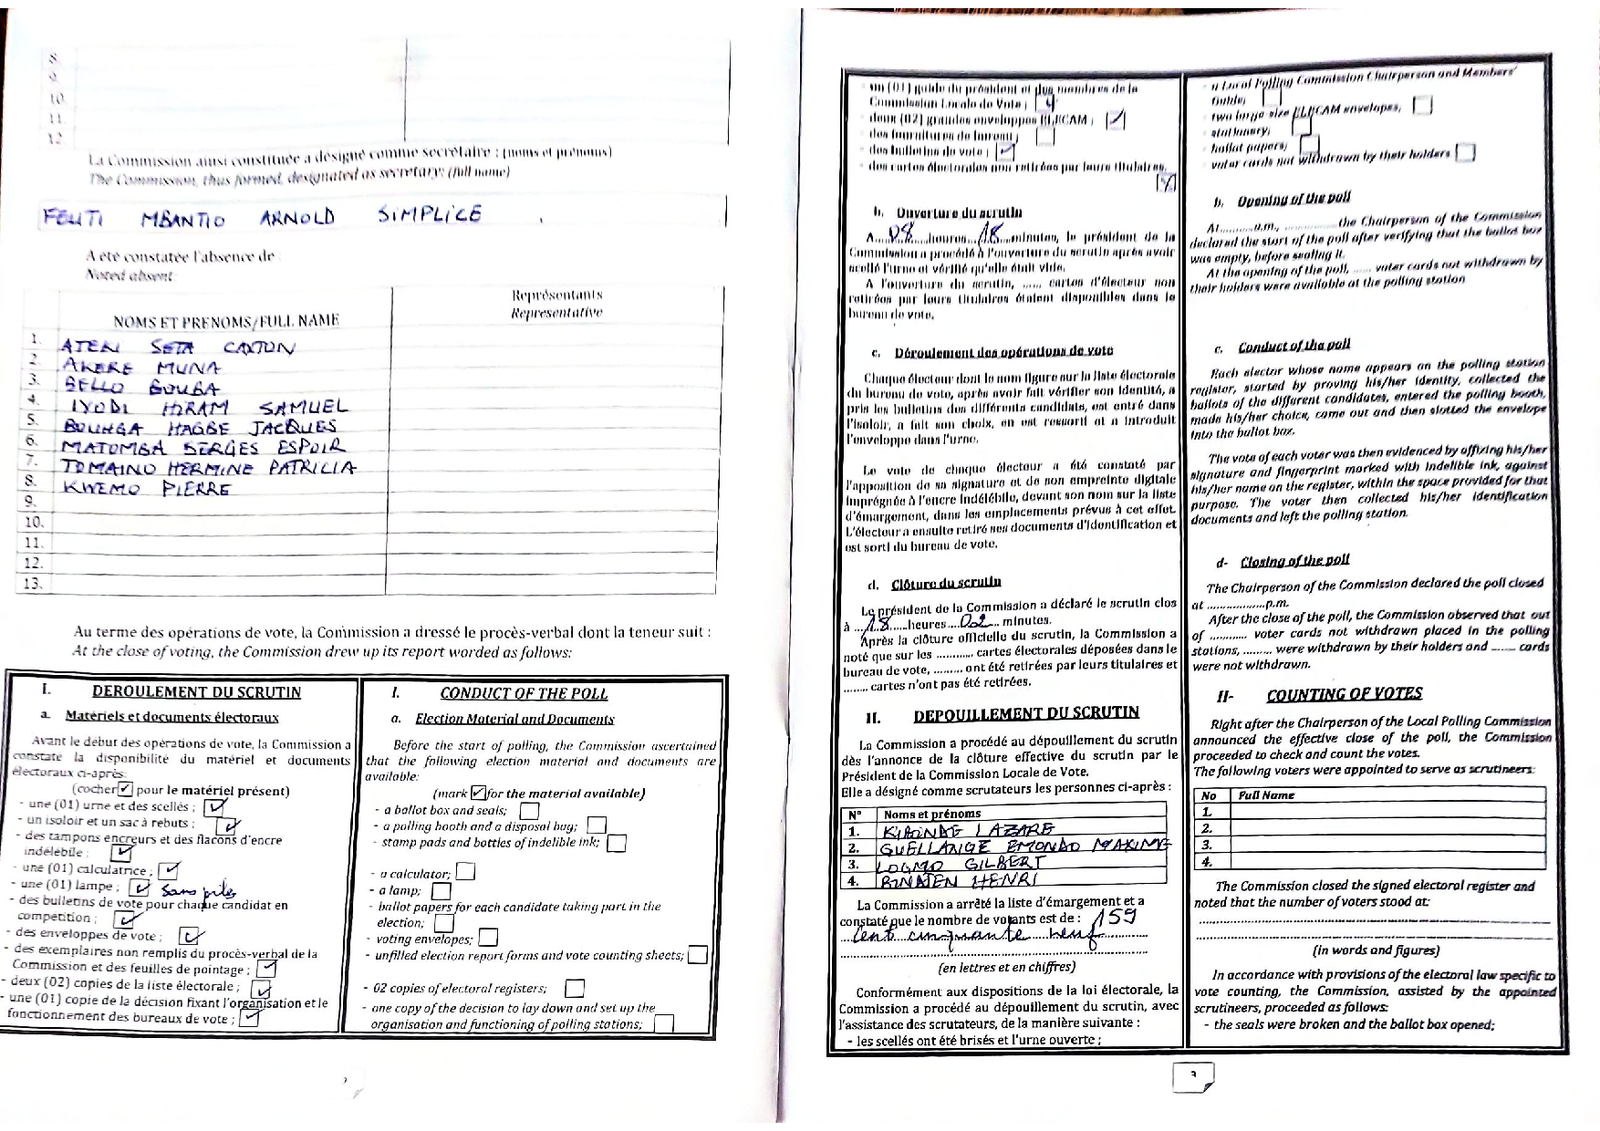 8.
9.
10.
11.
12.
La Commission ainsi constituée a désigné comme secrétaire : (noms et prénoms)
The Commission, thus formed, designated as secretary: (full name)
FEUTI MBANTIO ARNOLD SIMPLICE
A été constatée l'absence de :
Noted absent:
NOMS ET PRENOMS/FULL NAME
Représentants
Representative
1. ATEKI SETA CAXTON
2. AKERE MUNA
3. BELLO BOUBA
4. IYODI HIRAM SAMUEL
5. BOUNGA HAGBE JACQUES
6. MATOMBA SERGES ESPOIR
7. TOMAINO HERMINE PATRILIA
8. KWEMO PIERRE
9.
10.
11.
12.
13.
Au terme des opérations de vote, la Commission a dressé le procès-verbal dont la teneur suit :
At the close of voting, the Commission drew up its report worded as follows:
I. DEROULEMENT DU SCRUTIN
a. Matériels et documents électoraux
Avant le début des opérations de vote, la Commission a
constaté la disponibilité du matériel et documents
électoraux ci-après:
(cocher ✓ pour le matériel présent)
- une (01) urne et des scellés ; ✓
- un isoloir et un sac à rebuts ; ✓
- des tampons encreurs et des flacons d'encre
indélébile ; ✓
- une (01) calculatrice ; ✓
- une (01) lampe ; ✓ Sans piles
- des bulletins de vote pour chaque candidat en
compétition ; ✓
- des enveloppes de vote ; ✓
- des exemplaires non remplis du procès-verbal de la
Commission et des feuilles de pointage ; ✓
- deux (02) copies de la liste électorale ; ✓
- une (01) copie de la décision fixant l'organisation et le
fonctionnement des bureaux de vote ; ✓
I. CONDUCT OF THE POLL
a. Election Material and Documents
Before the start of polling, the Commission ascertained
that the following election material and documents are
available:
(mark ✓ for the material available)
- a ballot box and seals;
- a polling booth and a disposal bag;
- stamp pads and bottles of indelible ink;
- a calculator;
- a lamp;
- ballot papers for each candidate taking part in the
election;
- voting envelopes;
- unfilled election report forms and vote counting sheets;
- 02 copies of electoral registers;
- one copy of the decision to lay down and set up the
organisation and functioning of polling stations;
- un (01) guide du président et des membres de la
Commission Locale de Vote ;
- deux (02) grandes enveloppes ELECAM ; ✓
- des fournitures de bureau ;
- des bulletins de vote ; ✓
- des cartes électorales non retirées par leurs titulaires.
b. Ouverture du scrutin
A....08....heures....18....minutes, le président de la
Commission a procédé à l'ouverture du scrutin après avoir
scellé l'urne et vérifié qu'elle était vide.
A l'ouverture du scrutin, ...... cartes d'électeur non
retirées par leurs titulaires étaient disponibles dans le
bureau de vote.
c. Déroulement des opérations de vote
Chaque électeur dont le nom figure sur la liste électorale
du bureau de vote, après avoir fait vérifier son identité, a
pris les bulletins des différents candidats, est entré dans
l'isoloir, a fait son choix, en est ressorti et a introduit
l'enveloppe dans l'urne.
Le vote de chaque électeur a été constaté par
l'apposition de sa signature et de son empreinte digitale
imprégnée à l'encre indélébile, devant son nom sur la liste
d'émargement, dans les emplacements prévus à cet effet.
L'électeur a ensuite retiré ses documents d'identification et
est sorti du bureau de vote.
d. Clôture du scrutin
Le président de la Commission a déclaré le scrutin clos
à ....18....heures....02.... minutes.
Après la clôture officielle du scrutin, la Commission a
noté que sur les ............ cartes électorales déposées dans le
bureau de vote, ......... ont été retirées par leurs titulaires et
........ cartes n'ont pas été retirées.
II. DEPOUILLEMENT DU SCRUTIN
La Commission a procédé au dépouillement du scrutin
dès l'annonce de la clôture effective du scrutin par le
Président de la Commission Locale de Vote.
Elle a désigné comme scrutateurs les personnes ci-après :
N° Noms et prénoms
1. KIBINDE LAZARE
2. GUELLANGE EMONDO MAXIME
3. LOGMO GILBERT
4. BINATEN HENRI
La Commission a arrêté la liste d'émargement et a
constaté que le nombre de votants est de : 159
Cent cinquante neuf
(en lettres et en chiffres)
Conformément aux dispositions de la loi électorale, la
Commission a procédé au dépouillement du scrutin, avec
l'assistance des scrutateurs, de la manière suivante :
- les scellés ont été brisés et l'urne ouverte ;
- a Local Polling Commission Chairperson and Members'
Guide;
- two large size ELECAM envelopes;
- stationery;
- ballot papers;
- voter cards not withdrawn by their holders
b. Opening of the poll
At...........a.m., ................the Chairperson of the Commission
declared the start of the poll after verifying that the ballot box
was empty, before sealing it.
At the opening of the poll, ...... voter cards not withdrawn by
their holders were available at the polling station
c. Conduct of the poll
Each elector whose name appears on the polling station
register, started by proving his/her identity, collected the
ballots of the different candidates, entered the polling booth,
made his/her choice, came out and then slotted the envelope
into the ballot box.
The vote of each voter was then evidenced by affixing his/her
signature and fingerprint marked with indelible ink, against
his/her name on the register, within the space provided for that
purpose. The voter then collected his/her identification
documents and left the polling station.
d- Closing of the poll
The Chairperson of the Commission declared the poll closed
at .................p.m.
After the close of the poll, the Commission observed that out
of ........... voter cards not withdrawn placed in the polling
stations, ......... were withdrawn by their holders and ....... cards
were not withdrawn.
II- COUNTING OF VOTES
Right after the Chairperson of the Local Polling Commission
announced the effective close of the poll, the Commission
proceeded to check and count the votes.
The following voters were appointed to serve as scrutineers:
No Full Name
1.
2.
3.
4.
The Commission closed the signed electoral register and
noted that the number of voters stood at:
(in words and figures)
In accordance with provisions of the electoral law specific to
vote counting, the Commission, assisted by the appointed
scrutineers, proceeded as follows:
- the seals were broken and the ballot box opened;
3